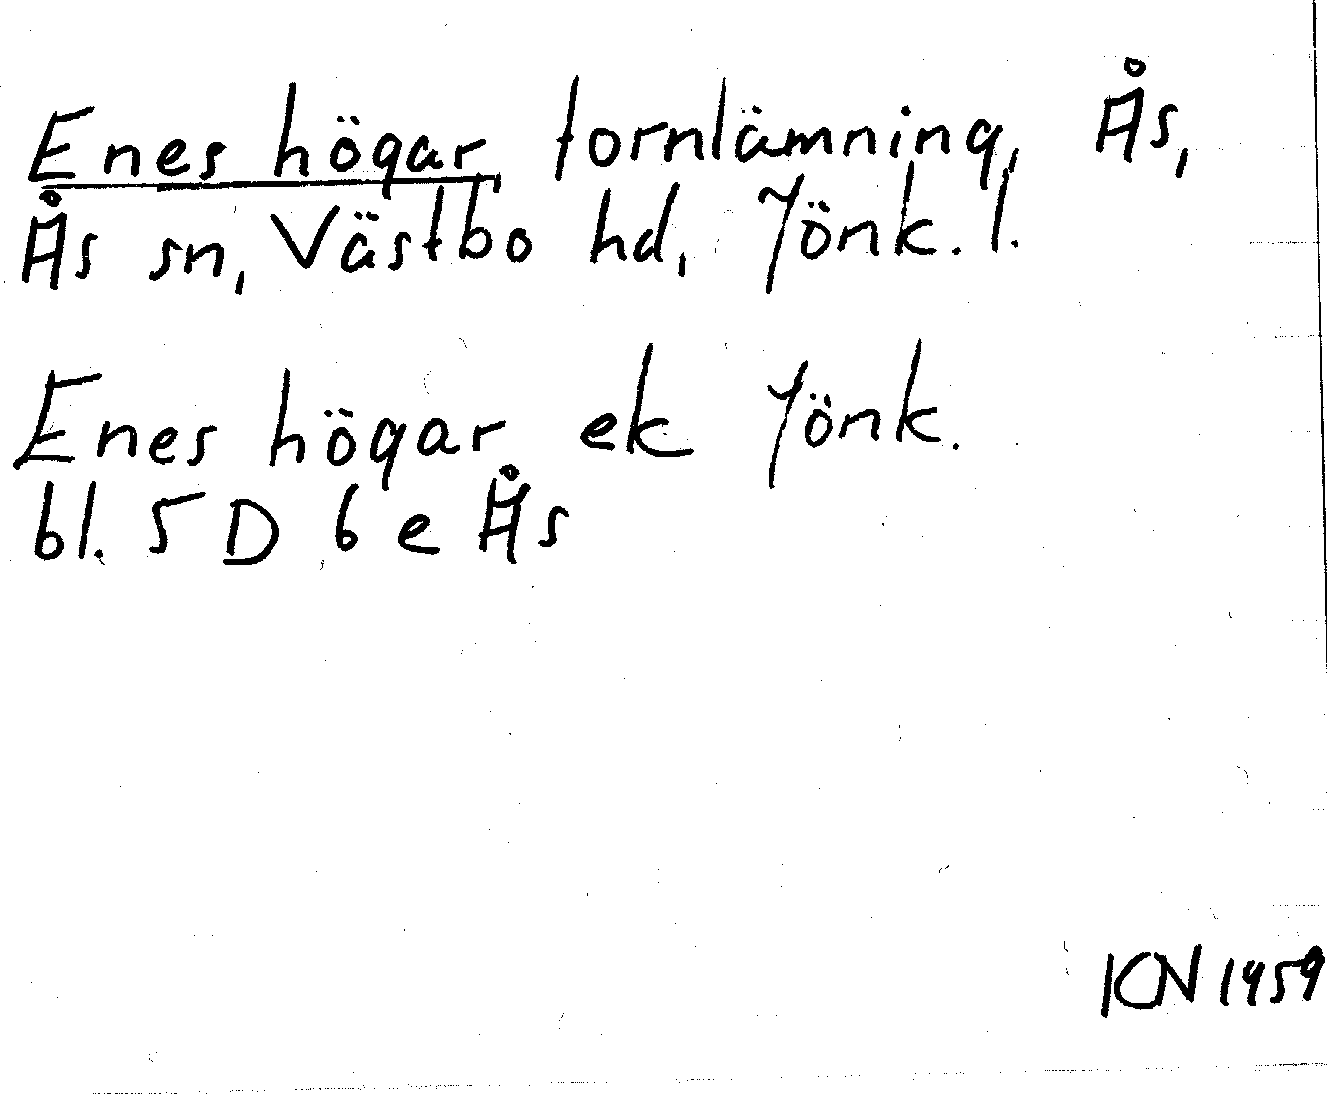 Enes högar, fornlämning, Ås,
Ås sn, Västbo hd, Jönk. l.
Enes högar ek Jönk.
bl. 5 D 6 e Ås
KN 1959